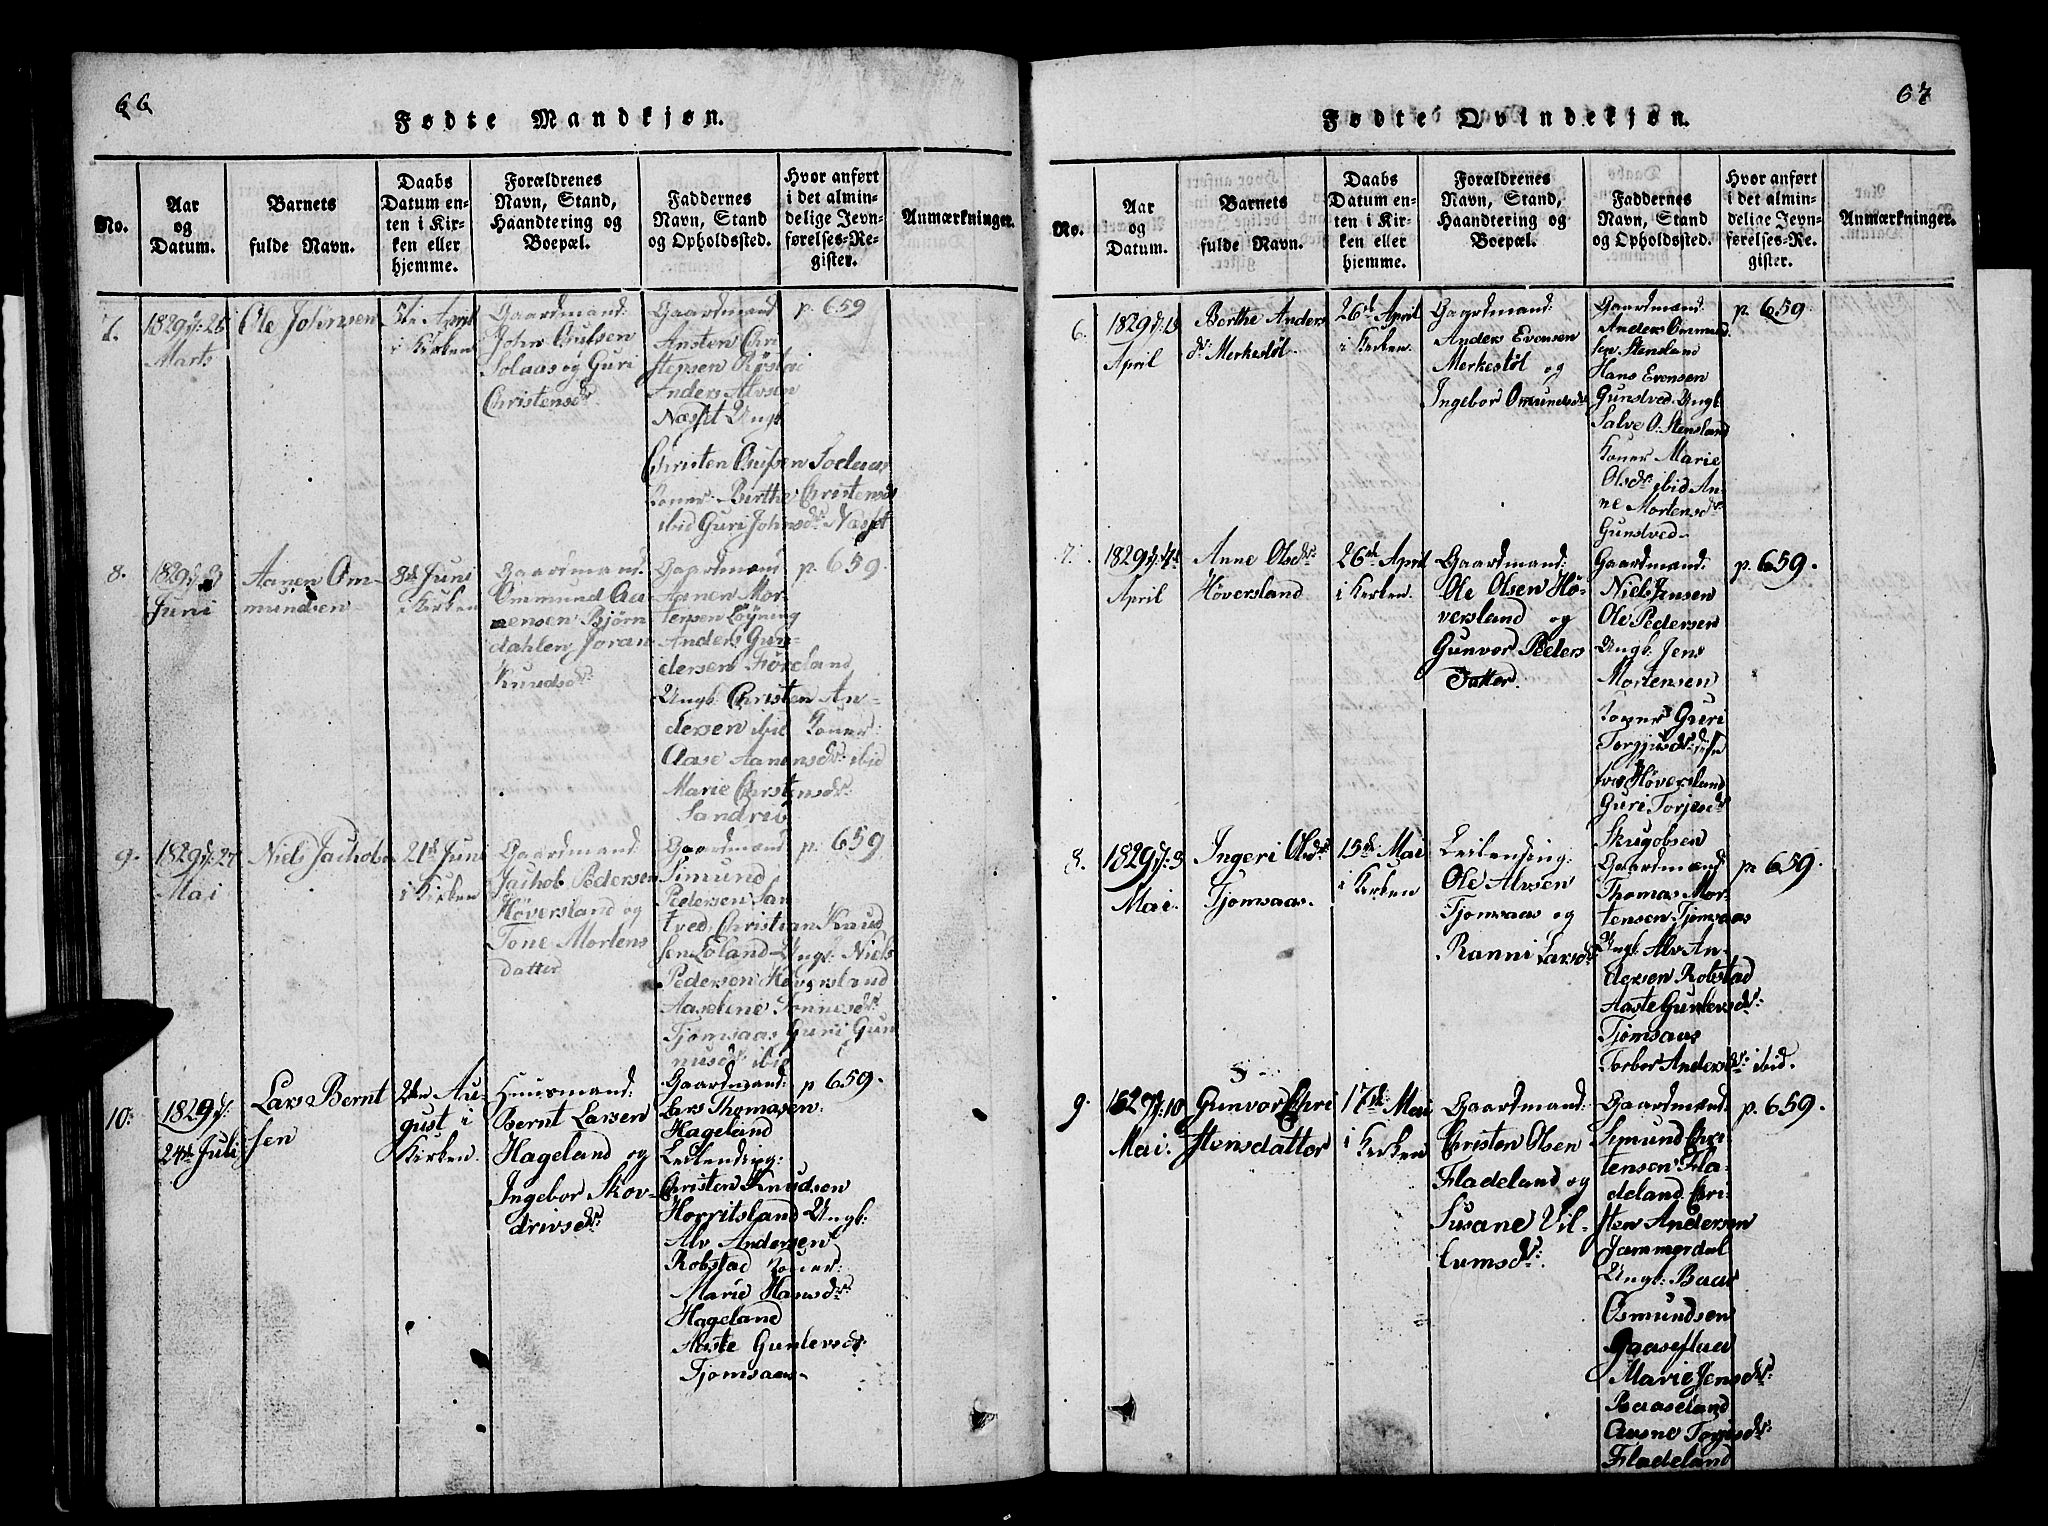 66
Fødte Mandkjøn.
No.
Aar
og
Datum.
Barnets
fulde Navn.
Daabs
Datum en-
ten i Kir-
ken eller
hjemme.
Forældrenes
Navn, Stand,
Haandtering og
Boepæl.
Faddernes
Navn, Stand
og Opholdssted.
Hvor anført
i det almin-
delige Jevn-
førelses-Re-
gister.
Anmærkninger.
7.
1829 d: 26
Marts
Ole Johnsen
5te April
i Kirken
Gaardmand:
John
Solaas og Guri
Christensdr
Gaardmand
Austen Chri
stensen
Anders Alvsen
Næsset Ungk
Christen
Koner: Berthe Christensdr
ibid Guri Johnsdr: Næsset
p. 659
8.
1829 d: 3
Juni
Aanen Om-
mundsen
8de Juni
i Kirken
Gaardmand:
Ommund Aa-
nensen Bjørn
dahlen Joran
Knudsdr:
Gaardmand
Aanen Mor-
tensen Løyning
Anders Gun-
dersen Føreland
Ungk: Christen An-
dersen ibid Koner:
Aase Aanensdr: ibid
Marie Christensdr:
Sandrib
p. 659.
9.
1829 d: 27
Mai
Niels Jachobsen
21de Juni
i Kirken
Gaardmand:
Jachob Pedersen
Høversland og
Tone Mortens
datter
Gaardmand
Simund
Pedersen San
tved, Christian Knud
sen Loland Ungk: Niels
Pedersen Høversland
Aaseline Tønnesdr:
Tjomsaas Guri Gun
nusdr ibid
p. 659
10.
1829 d:
24de Juli
Lars Bernt
sen
2den Au-
gust i
Kirken.
Huusmand:
Bernt Larsen
Hageland og
Ingebor Skov-
drivsdr:
Gaardmand:
Lars Thomasen:
Hageland
Leilending:
Christen Knudsen
Horritsland Ungk:
Alv Andersen
Robstad Koner:
Marie Hansdr:
Hageland
Aaste Gunlevsdr:
Tjomsaas
p 659.
67
Fødte Qvindekjøn.
No.
Aar
og
Datum.
Barnets
fulde Navn.
Daabs
Datum en-
ten i Kir-
ken eller
hjemme.
Forældrenes
Navn, Stand,
Haandtering og
Boepæl.
Faddernes
Navn, Stand
og Opholdssted.
Hvor anført
i det almin-
delige Jevn-
førelses-Re-
gister.
Anmærkninger.
6.
1829 d:
April
Berthe Anders
dr: Merkestøl
26de April
i Kirken
Gaardmand:
Anders Evensen
Merkestøl og
Ingebor Omundsdr
Gaardmand:
Anders Ommund
sen Stensland
Hans Evensen
Gunstved. Ungk
Salve O: Stensland
Koner Marie
Olsdr: ibid An-
ne Mortensdr
Gunstved
p. 659.
7.
1829 d:
April
Anne Olsdr:
Høversland
26de April
i Kirken.
Gaardmand:
Ole Olsen Hø-
versland og
Gunvor Peders
Datter.
Gaardmand:
Niels Jensen
Ole Pedersen
Ungk. Jens
Mortensen
Koner Guri
Torgiusdr:
fra Høversland
Guri Torjesdr
p. 659.
8.
1829 d: 3
Mai.
Ingeri Olsdr:
Tjomsaas.
15de Mai
i Kirken
Leilending:
Ole Alvsen
Tjomsaas og
Ranni Larsdr
Skugobsen
Gaardmand
Thomas Mor-
tensen Tjomsaas
Ungk. Alv An-
dersen Robstad
Aaste Gunlevsdr:
Tjomsaas
Torbor Andersdr: ibid.
p. 659.
9.
1829 d: 10
Mai.
Gunvor Chri
stensdatter
17de Mai
i Kirken
Gaardmand:
Christen Olsen
Fladeland og
Susane Vil-
lumsdr:
Gaardmand:
Simund Chri-
stensen Fla-
deland. Chri-
sten Andersen
Jammerdal
Ungk: Baar
Osmundsen
Gaaseflaa
Marie Jensdr:
Baaseland
Aasne Torjusdr:
Fladeland
p. 659.